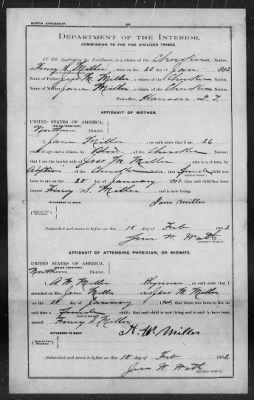 BIRTH AFFIDAVIT.
DEPARTMENT OF THE INTERIOR,
COMMISSION TO THE FIVE CIVILIZED TRIBES.
IN RE Application for Enrollment, as a citizen of the Cherokee Nation,
of Miller, born on the 20 day of Jan 1902
Name of Father: M. Miller a citizen of the Cherokee Nation.
Name of Mother: Jane Miller a citizen of the Cherokee Nation.
I. T.
AFFIDAVIT OF MOTHER.
UNITED STATES OF AMERICA,
Northern District.
I, Jane Miller, on oath state that I am 26
years of age and a citizen by blood of the Cherokee Nation;
that I am the lawful wife of M. Miller, who is a citizen, by
Adoption of the Cherokee Nation; that a female child was
born to me on the 20 day of January, 1902, that said child has been
named S. Miller, and is now living.
Jane Miller
WITNESSES TO MARK:
Subscribed and sworn to before me this 18 day of Feb 1902
NOTARY PUBLIC.
AFFIDAVIT OF ATTENDING PHYSICIAN, OR MIDWIFE.
UNITED STATES OF AMERICA,
Northern District.
I, Miller, a Physician, on oath state that I
attended on Mrs. Jane Miller, wife of M. Miller
on the 20 day of January, 1902; that there was born to her on
said date a female child; that said child is now living and is said to have been
named S. Miller
Miller
WITNESSES TO MARK:
Subscribed and sworn to before me this 18 day of Feb 1902
NOTARY PUBLIC.